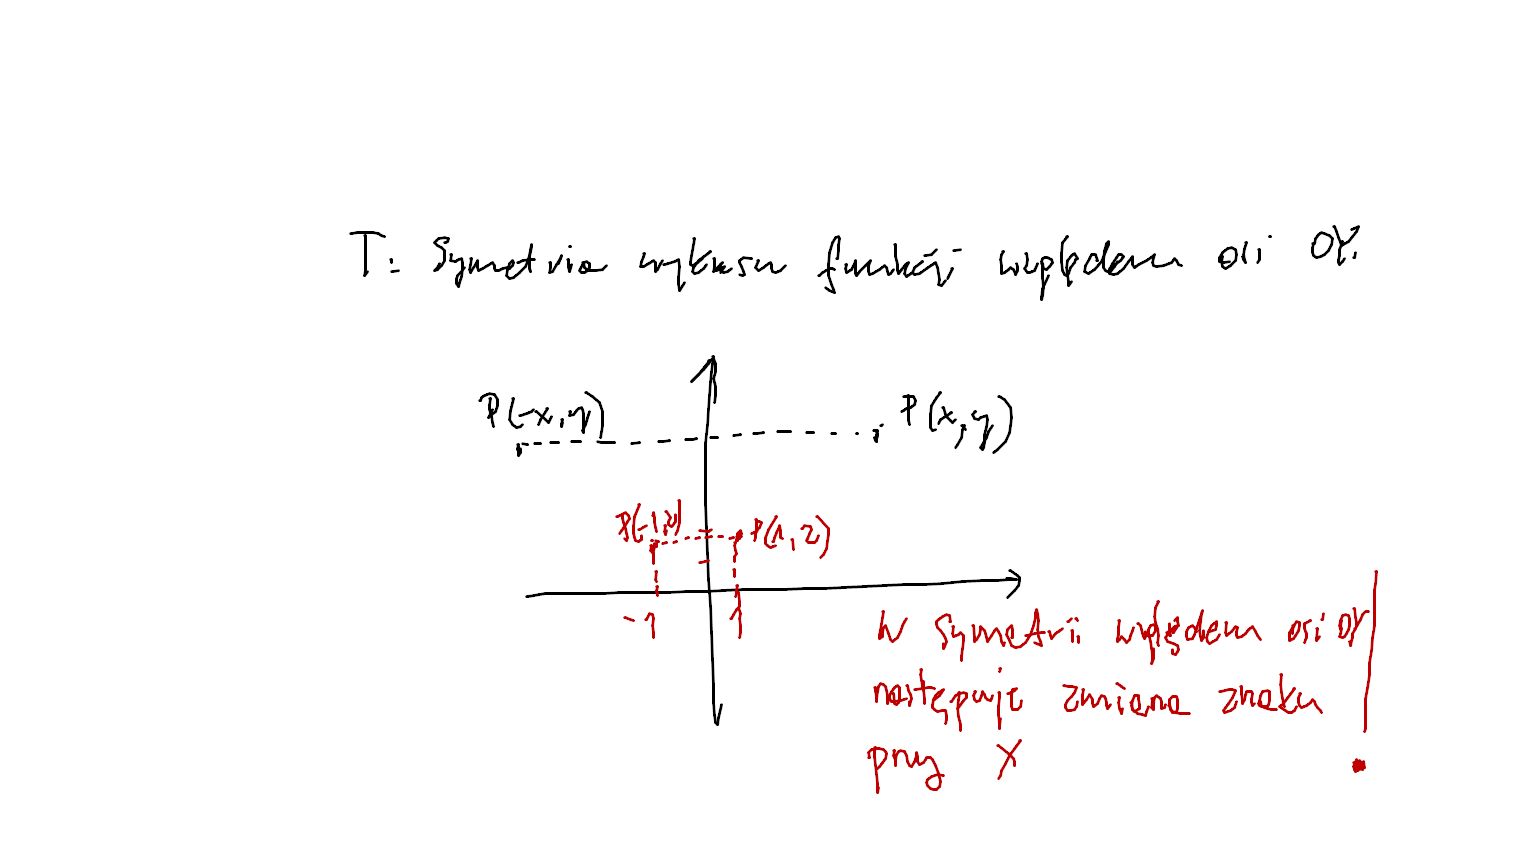 T: Symetria wykresu funkcji względem osi OY.
P(-x, y) P(x, y)
P(-1,2) P(1, 2)
-1 1
W symetrii względem osi OY
następuje zmiana znaku
przy X !